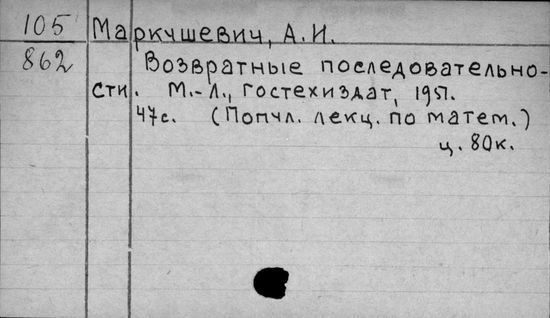 105 Маркушевич, А. И.
862 Возвратные последовательно-
сти. М.-Л., Гостехиздат, 1951.
47с. (Попул. лекц. по матем.)
ц. 80к.